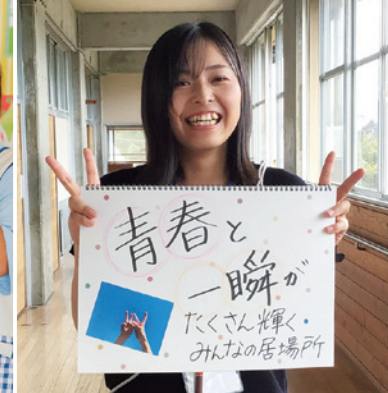 青春と
一瞬が
たくさん輝く
みんなの居場所